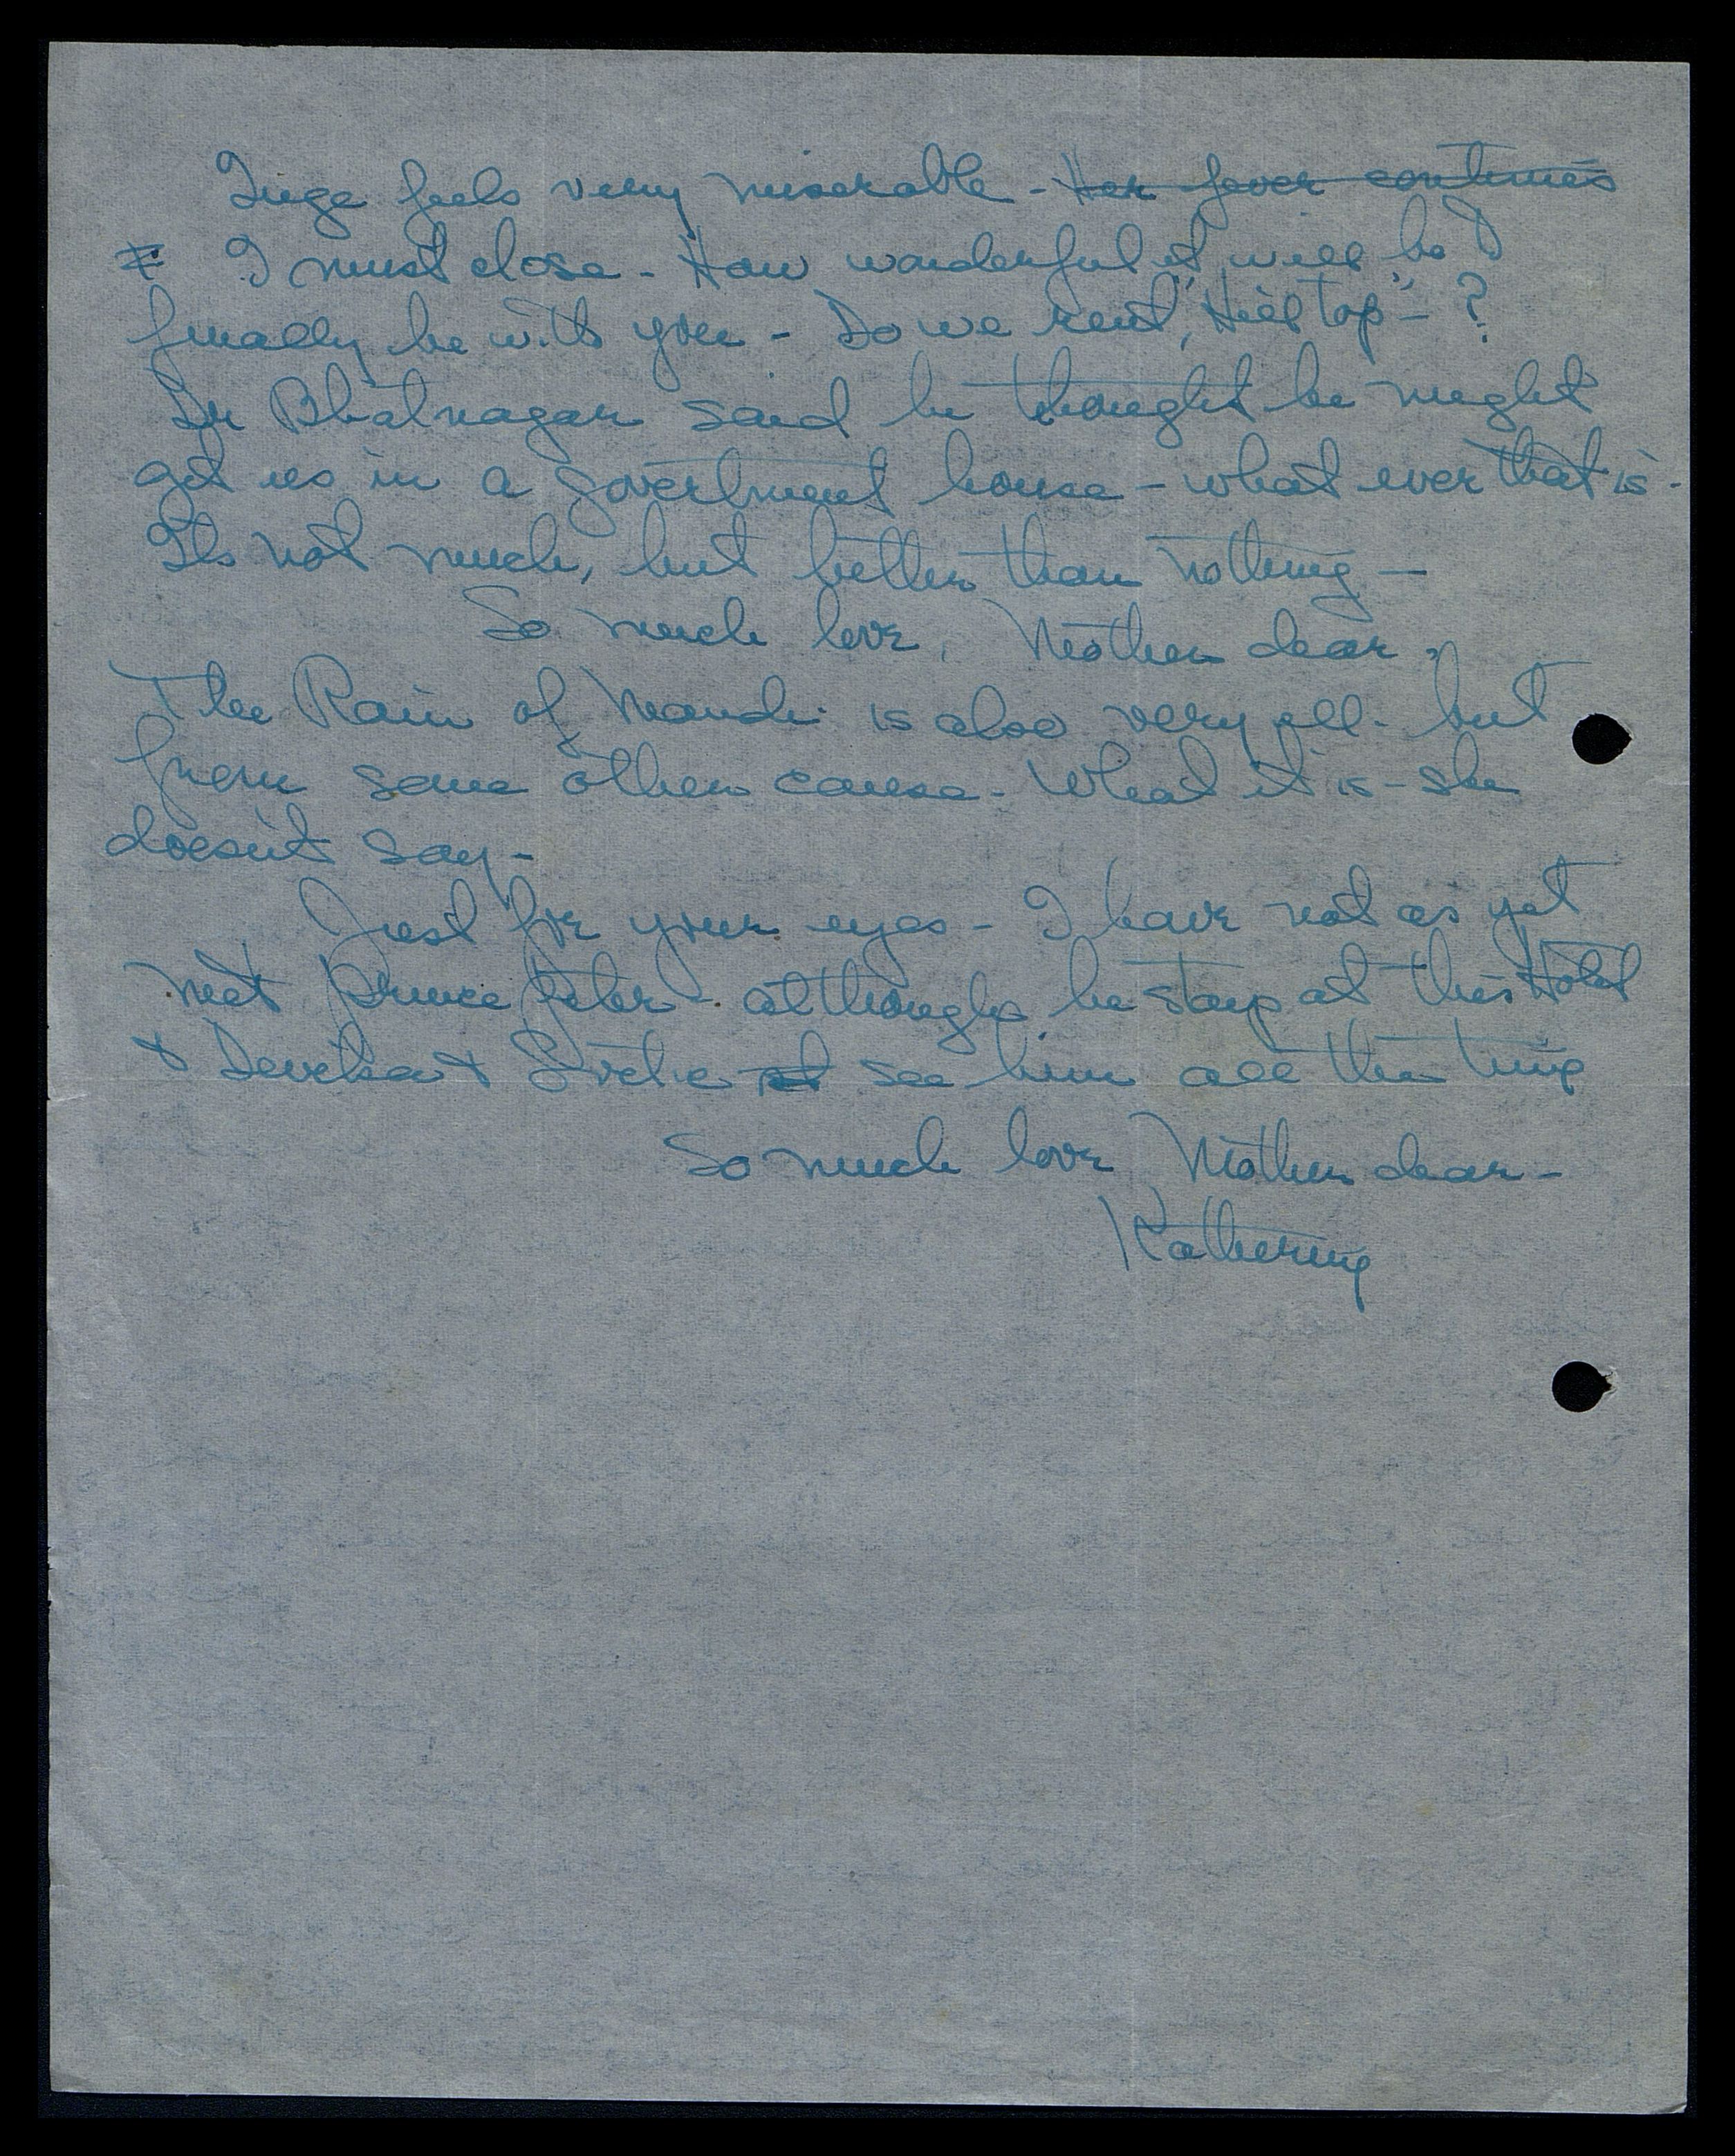 Inge feels very miserable - Her fever continues
I must close - How wonderful it will be to
finally be with you - Do we rent "Hill top" - ?
Dr Bhatnagar said he thought he might
get us in a goverbment house - what ever that is -
Its not much, but better than nothing -
So much love, Mother dear,
The Rani of Mandi is also very ill - but
from some other cause - What it is - she
doesn't say -
Just for your eyes - I have not as yet
met Prince Peter - although he stays at this Hotel
& Devika & see him all the time
So much love Mother dear -
Katherine